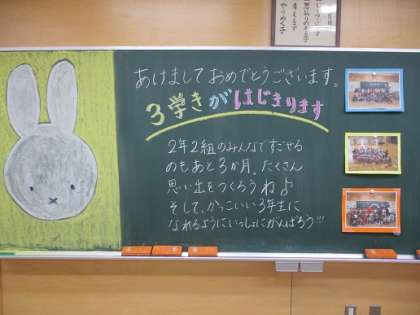 あけましておめでとうございます。
3学きがはじまります
2年2組のみんなですごせる
のもあと3か月。たくさん
思い出をつくろうね♪
そして、かっこいい3年生に
なれるようにいっしょにがんばろう!!!